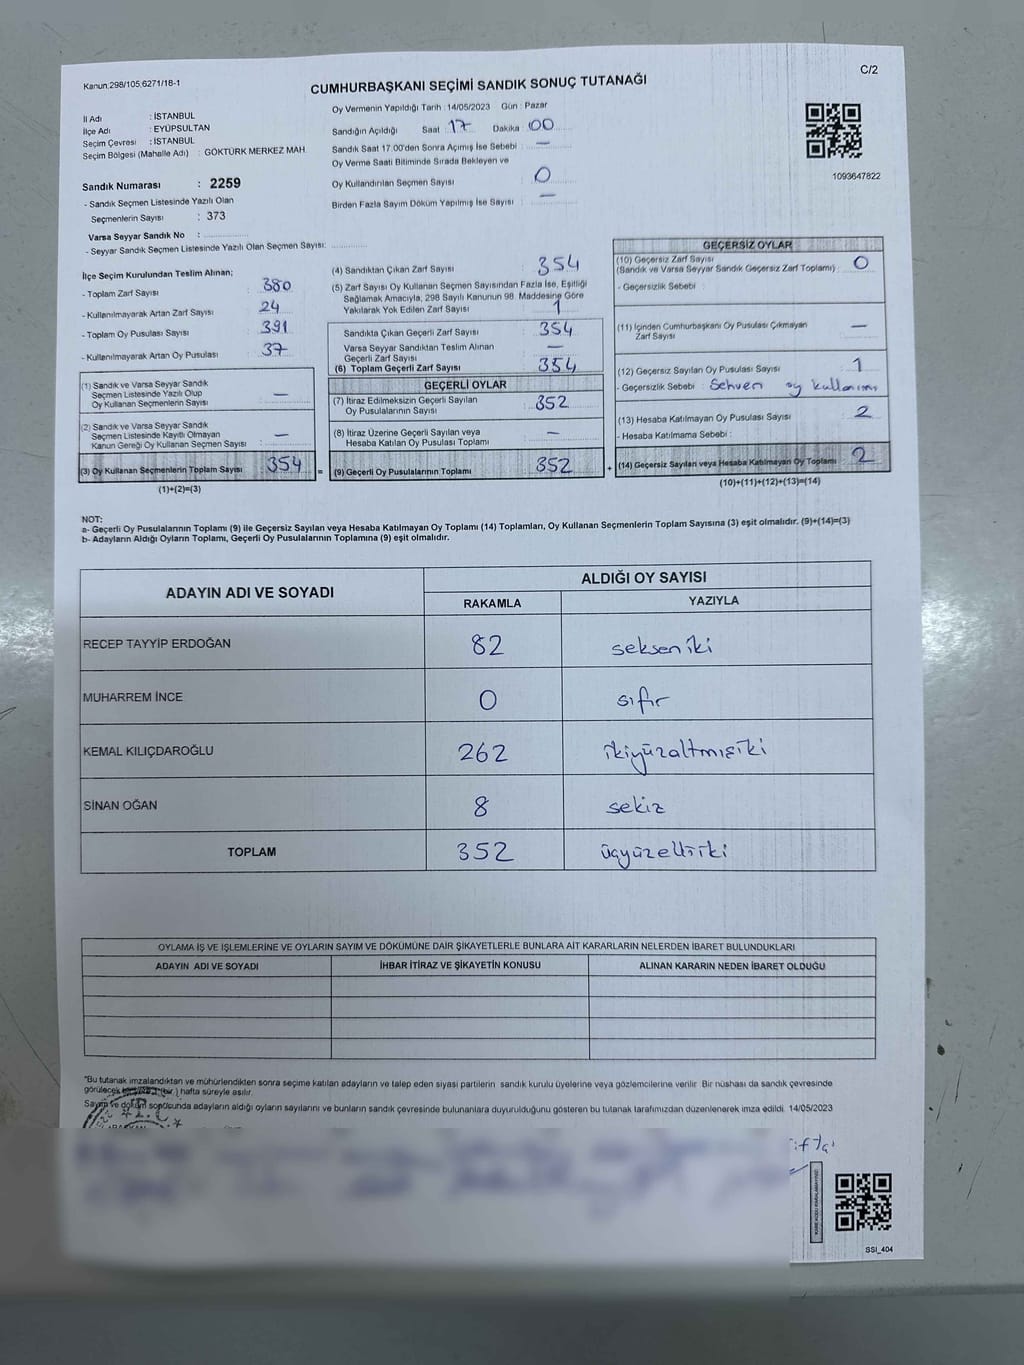 Kanun:298/105,6271/18-1
C/2
CUMHURBAŞKANI SEÇİMİ SANDIK SONUÇ TUTANAĞI
İl Adı : İSTANBUL
İlçe Adı : EYÜPSULTAN
Seçim Çevresi : İSTANBUL
Seçim Bölgesi (Mahalle Adı) : GÖKTÜRK MERKEZ MAH.
Sandık Numarası : 2259
- Sandık Seçmen Listesinde Yazılı Olan
Seçmenlerin Sayısı : 373
Varsa Seyyar Sandık No :
- Seyyar Sandık Seçmen Listesinde Yazılı Olan Seçmen Sayısı:
Oy Vermenin Yapıldığı Tarih : 14/05/2023 Gün : Pazar
Sandığın Açıldığı Saat 17 Dakika 00
Sandık Saat 17.00'den Sonra Açımış İse Sebebi : —
Oy Verme Saati Bitiminde Sırada Bekleyen ve
Oy Kullandırılan Seçmen Sayısı : 0
Birden Fazla Sayım Döküm Yapılmış İse Sayısı : —
1093647822
İlçe Seçim Kurulundan Teslim Alınan;
- Toplam Zarf Sayısı : 380
- Kullanılmayarak Artan Zarf Sayısı : 24
- Toplam Oy Pusulası Sayısı : 391
- Kullanılmayarak Artan Oy Pusulası : 37
(1) Sandık ve Varsa Seyyar Sandık
Seçmen Listesinde Yazılı Olup
Oy Kullanan Seçmenlerin Sayısı : —
(2) Sandık ve Varsa Seyyar Sandık
Seçmen Listesinde Kayıtlı Olmayan
Kanun Gereği Oy Kullanan Seçmen Sayısı : —
(3) Oy Kullanan Seçmenlerin Toplam Sayısı : 354 =
(1)+(2)=(3)
(4) Sandıktan Çıkan Zarf Sayısı : 354
(5) Zarf Sayısı Oy Kullanan Seçmen Sayısından Fazla İse, Eşitliği
Sağlamak Amacıyla, 298 Sayılı Kanunun 98. Maddesine Göre
Yakılarak Yok Edilen Zarf Sayısı : 1
Sandıkta Çıkan Geçerli Zarf Sayısı : 354
Varsa Seyyar Sandıktan Teslim Alınan
Geçerli Zarf Sayısı : —
(6) Toplam Geçerli Zarf Sayısı : 354
GEÇERLİ OYLAR
(7) İtiraz Edilmeksizin Geçerli Sayılan
Oy Pusulalarının Sayısı : 352
(8) İtiraz Üzerine Geçerli Sayılan veya
Hesaba Katılan Oy Pusulası Toplamı : —
(9) Geçerli Oy Pusulalarının Toplamı : 352 +
GEÇERSİZ OYLAR
(10) Geçersiz Zarf Sayısı
(Sandık ve Varsa Seyyar Sandık Geçersiz Zarf Toplamı) : 0
- Geçersizlik Sebebi :
(11) İçinden Cumhurbaşkanı Oy Pusulası Çıkmayan
Zarf Sayısı : —
(12) Geçersiz Sayılan Oy Pusulası Sayısı : 1
- Geçersizlik Sebebi : Sehven oy kullanımı
(13) Hesaba Katılmayan Oy Pusulası Sayısı : 2
- Hesaba Katılmama Sebebi :
(14) Geçersiz Sayılan veya Hesaba Katılmayan Oy Toplamı : 2
(10)+(11)+(12)+(13)=(14)
NOT:
a- Geçerli Oy Pusulalarının Toplamı (9) ile Geçersiz Sayılan veya Hesaba Katılmayan Oy Toplamı (14) Toplamları, Oy Kullanan Seçmenlerin Toplam Sayısına (3) eşit olmalıdır. (9)+(14)=(3)
b- Adayların Aldığı Oyların Toplamı, Geçerli Oy Pusulalarının Toplamına (9) eşit olmalıdır.
ADAYIN ADI VE SOYADI
ALDIĞI OY SAYISI
RAKAMLA YAZIYLA
RECEP TAYYİP ERDOĞAN 82 seksen iki
MUHARREM İNCE 0 sıfır
KEMAL KILIÇDAROĞLU 262 ikiyüzaltmışiki
SİNAN OĞAN 8 sekiz
TOPLAM 352 üçyüzelliiki
OYLAMA İŞ VE İŞLEMLERİNE VE OYLARIN SAYIM VE DÖKÜMÜNE DAİR ŞİKAYETLERLE BUNLARA AİT KARARLARIN NELERDEN İBARET BULUNDUKLARI
ADAYIN ADI VE SOYADI İHBAR İTİRAZ VE ŞİKAYETİN KONUSU ALINAN KARARIN NEDEN İBARET OLDUĞU
"Bu tutanak imzalandıktan ve mühürlendikten sonra seçime katılan adayların ve talep eden siyasi partilerin sandık kurulu üyelerine veya gözlemcilerine verilir. Bir nüshası da sandık çevresinde
görülecek (bir) hafta süreyle asılır.
Sayım ve döküm sonucunda adayların aldığı oyların sayılarını ve bunların sandık çevresinde bulunanlara duyurulduğunu gösteren bu tutanak tarafımızdan düzenlenerek imza edildi. 14/05/2023
SSI_404